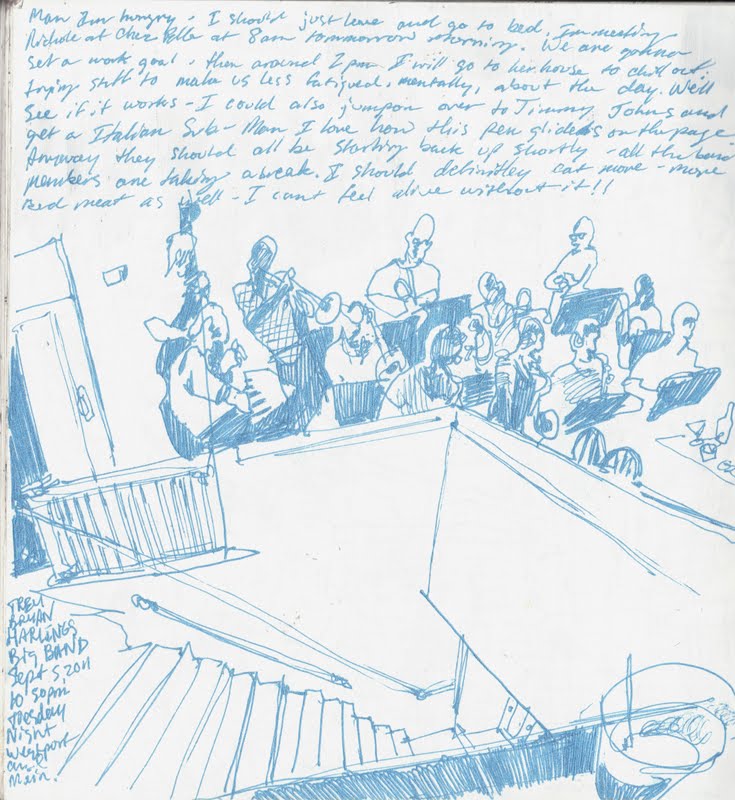 Man I'm hungry - I should just leave and go to bed, I'm meeting
Nichole at Chez Elle at 8am tommorrow morning. We are gonna
set a work goal, then around 2pm I will go to her house to chill out,
trying stuff to make us less fatigued, mentally, about the day. We'll
see if it works - I could also jump on over to Jimmy Johns and
get a Italian Sub - Man I love how this pen glides on the page.
Anyway they should all be starting back up shortly - all the band
members are taking a break. I should definitley eat more - more
red meat as well - I cant feel alive without it!!
BRYAN
HARLINGS
BIG BAND
Sept 5, 2011
10:50pm
Tuesday
Night
Westport
and
Main.